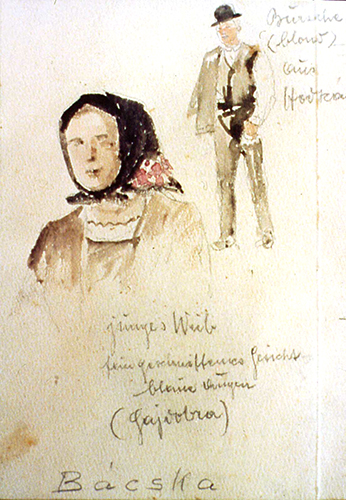 Bursche
(blond)
aus
Hodžá
junges Weib
feingeschnittenes Gesicht
blaue Augen
(Gajdobra)
Bácska